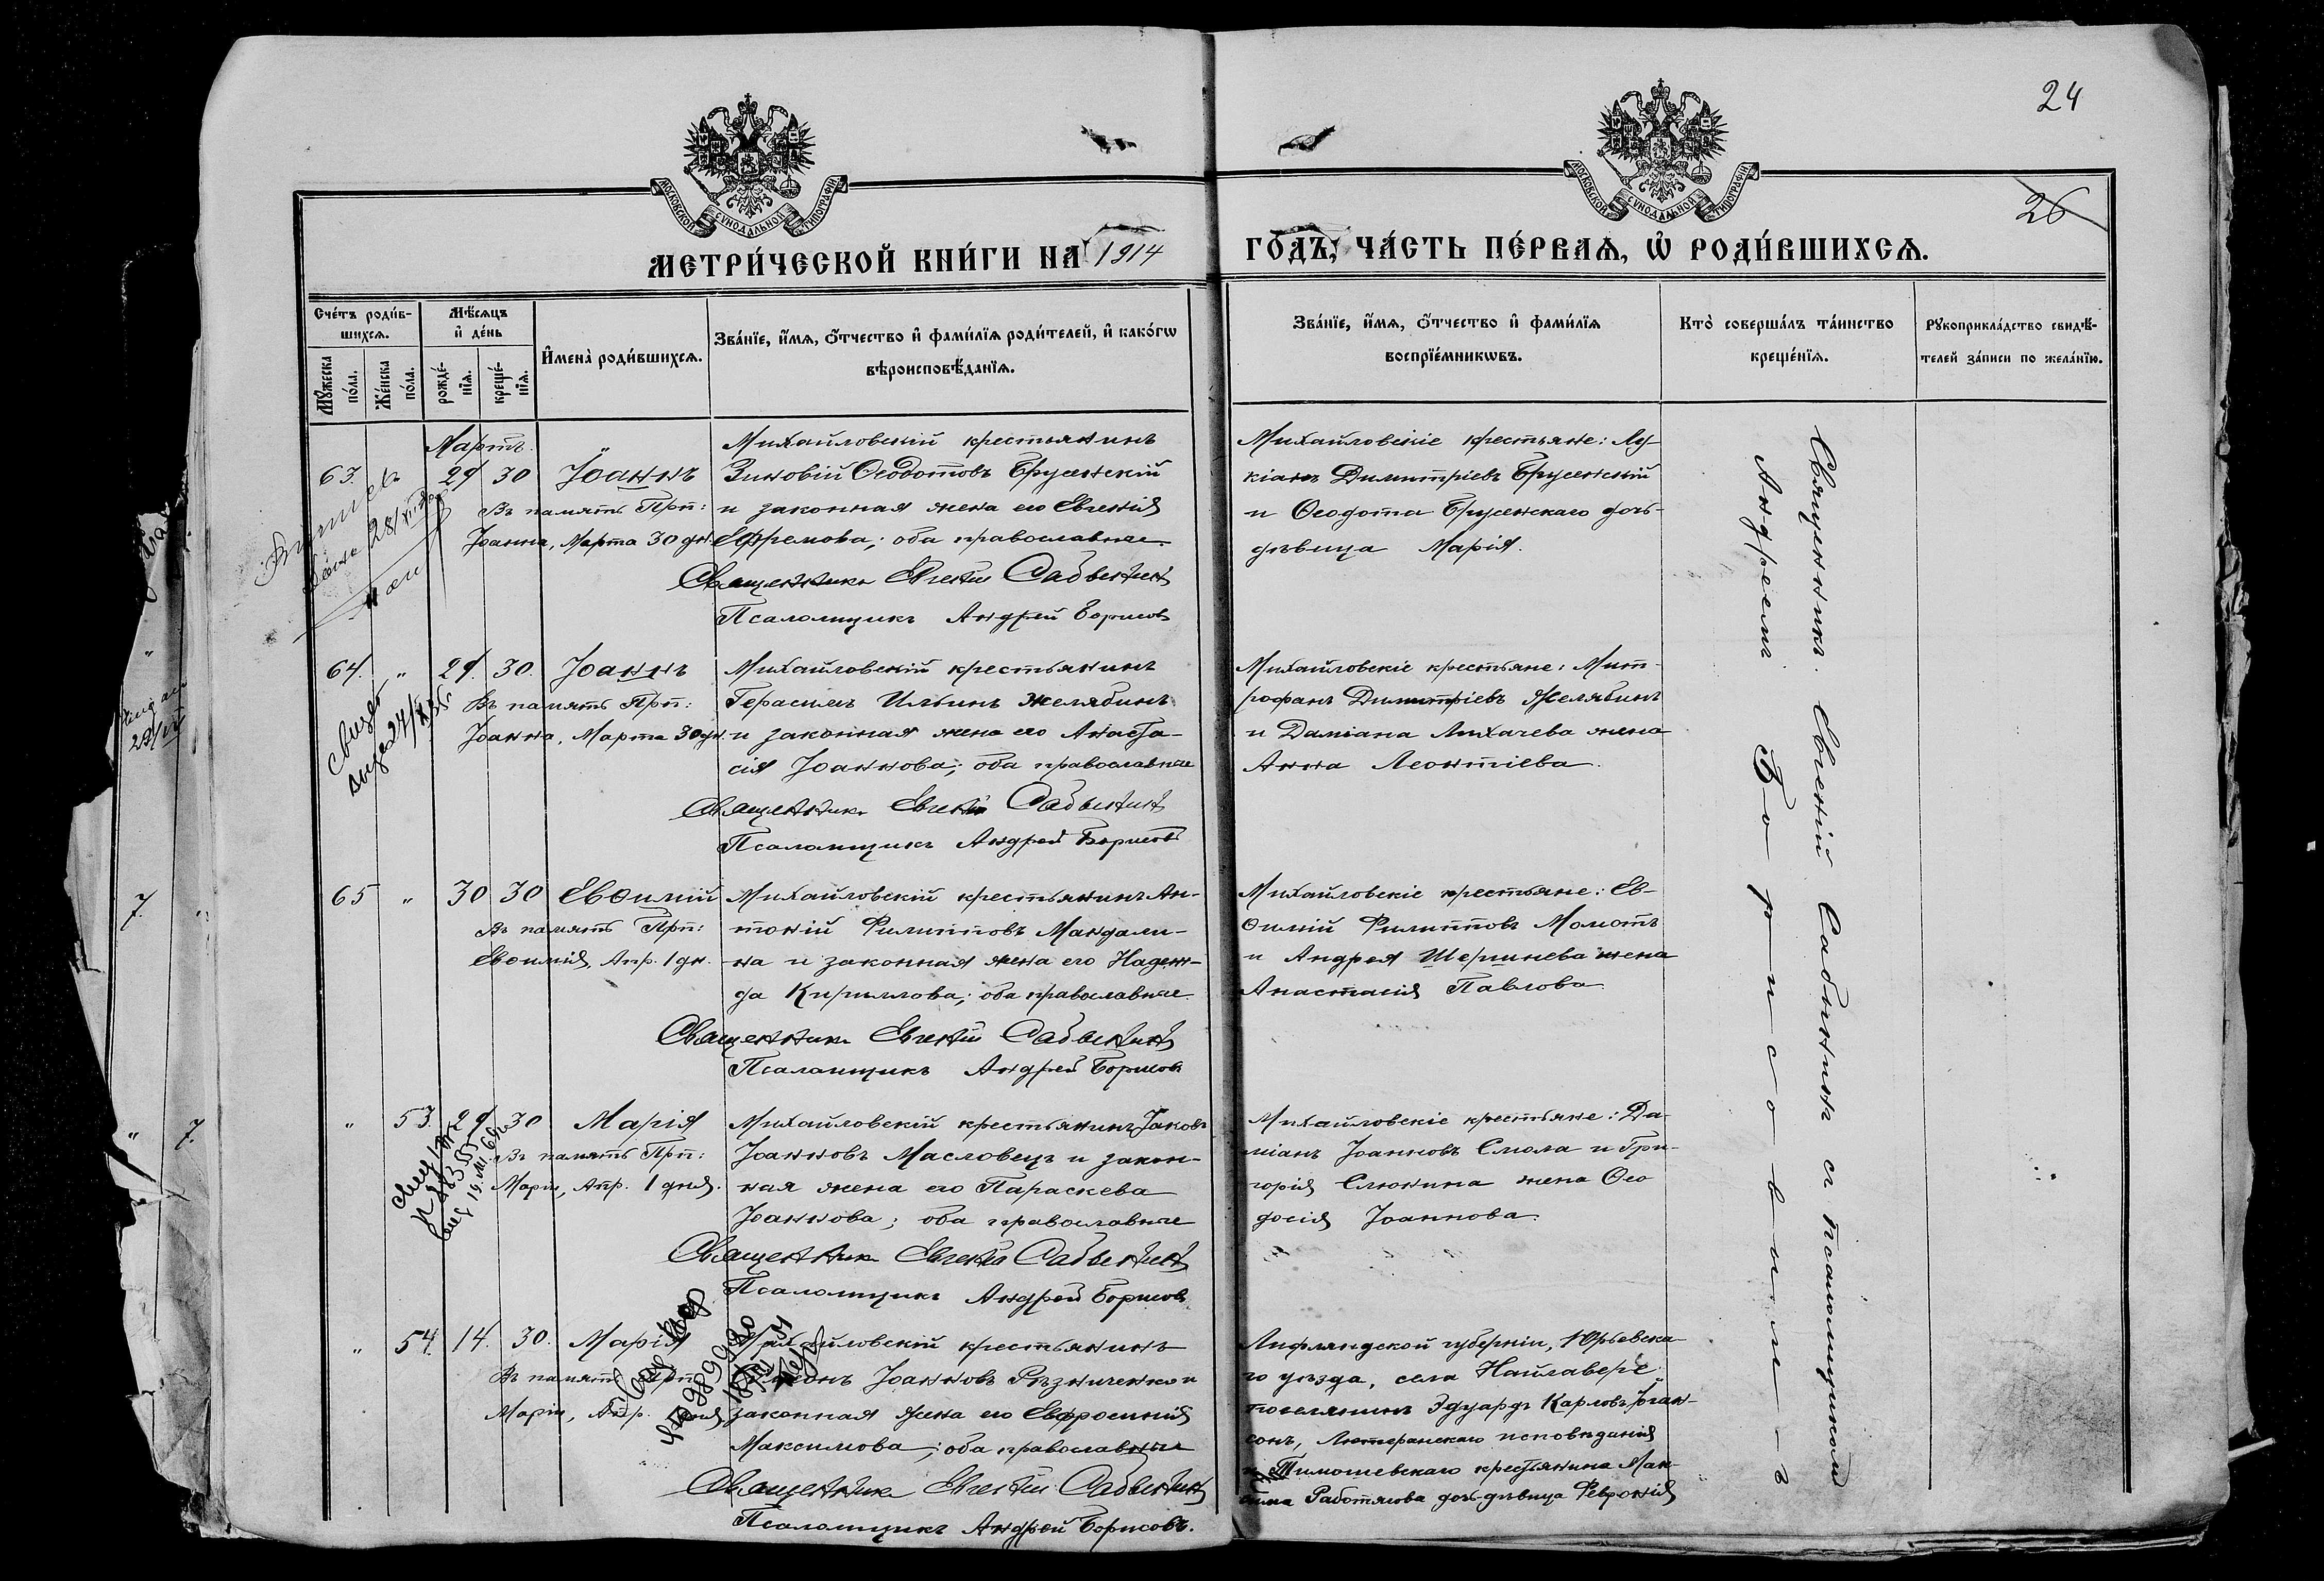 24
26
МОСКОВСКОЙ СѴНОДАЛЬНОЙ ТИПОГРАФІИ
МОСКОВСКОЙ СѴНОДАЛЬНОЙ ТИПОГРАФІИ
МЕТРИ́ЧЕСКОЙ КНИ́ГИ НА 1914
ГОДЪ, ЧА́СТЬ ПЕ́РВАѦ, Ѡ РОДИ́ВШИХСѦ.
Сче́тъ роди́в-
шихсѧ.
Мꙋжеска по́ла.
Же́нска по́ла.
Мѣ́сѧцъ
и де́нь
рожде́-
нїѧ.
креще́-
нїѧ.
Имена̀ роди́вшихсѧ.
Зва́нїе, и́мѧ, ѻ́тчество и фами́лїѧ роди́телей, и како́гѡ
вѣроисповѣ́данїѧ.
Зва́нїе, и́мѧ, ѻ́тчество и фами́лїѧ
воспрїе́мникѡвъ.
Кто̀ соверша́лъ та́инство
креще́нїѧ.
Рꙋкоприкла́дство свидѣ́-
телей за́писи по жела́нїю.
Мартъ.
63. 29 30 Іоаннъ
Въ память Прп:
Іоанна, Марта 30 дн.
Михайловскій крестьянинъ
Зиновій Ѳеодотовъ Бруженскій
и законная жена его Евгенія
Ефремова; оба православные.
Священникъ Евгеній Сабынинъ
Псаломщикъ Андрей Борисовъ
Михайловскіе крестьяне: Лу-
кіанъ Димитріевъ Бруженскій
и Ѳеодота Бруженскаго дочь-
дѣвица Марія.
64. " 29. 30. Іоаннъ
Въ память Прп:
Іоанна, Марта 30 дн.
Михайловскій крестьянинъ
Герасимъ Ильинъ Желябинъ
и законная жена его Анаста-
сія Іоаннова; оба православные
Священникъ Евгеній Сабынинъ
Псаломщикъ Андрей Борисовъ
Михайловскіе крестьяне: Мит-
рофанъ Димитріевъ Желябинъ
и Даміана Лихачева жена
Анна Леонтіева.
65 " 30 30 Евѳимій
Въ память Прп:
Евѳимія, Апр. 1 дн.
Михайловскій крестьянинъ Ан-
тоній Филипповъ Мандали-
на и законная жена его Надеж-
да Кириллова; оба православные.
Священникъ Евгеній Сабынинъ
Псаломщикъ Андрей Борисовъ
Михайловскіе крестьяне: Ев-
ѳимій Филипповъ Момотъ
и Андрея Шершнева жена
Анастасія Павлова.
" 53. 29 30 Марія
Въ память Прп:
Маріи, Апр. 1 дня.
Михайловскій крестьянинъ Іаковъ
Іоанновъ Масловецъ и закон-
ная жена его Параскева
Іоаннова; оба православные
Священникъ Евгеній Сабынинъ
Псаломщикъ Андрей Борисовъ
Михайловскіе крестьяне: Да-
міанъ Іоанновъ Смола и Гри-
горія Слюнина жена Ѳео
досія Іоаннова.
" 54. 14. 30. Марія
Въ память Прп:
Маріи, Апр. дня
Михайловскій крестьянинъ
Симеонъ Іоанновъ Рѣзниченко и
законная жена его Евфросинія
Максимова; оба православные
Священникъ Евгеній Сабынинъ
Псаломщикъ Андрей Борисовъ.
Лифляндской губерніи, Юрьевска-
го уѣзда, села Найлавере
поселянинъ Эдуардъ Карловъ Іоган-
сонъ, Лютеранскаго исповѣданія
и Тимошевскаго крестьянина Мак-
сима Работягова дочь-дѣвица Февронія
Священникъ Евгеній Сабынинъ съ псаломщикомъ
Андреемъ Борисовымъ
7.
" 7.